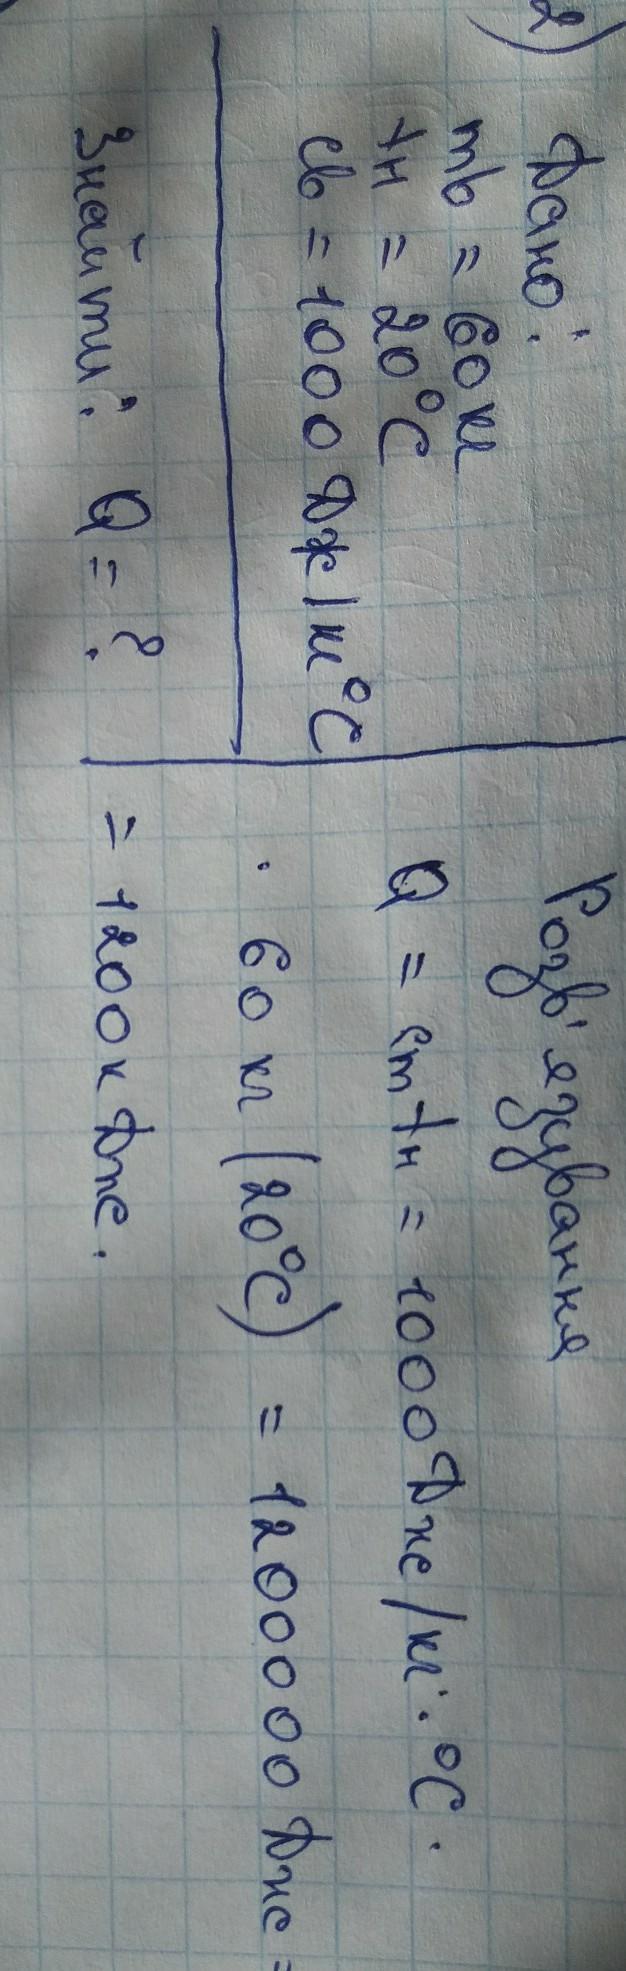 2)
Дано:
mв = 60 кг
tн = 20°C
cв = 1000 Дж/кг°C
Знайти: Q = ?
Розв'язування
Q = cmtн = 1000 Дж/кг·°C·
· 60 кг (20°C) = 1200000 Дж =
= 1200 кДж.